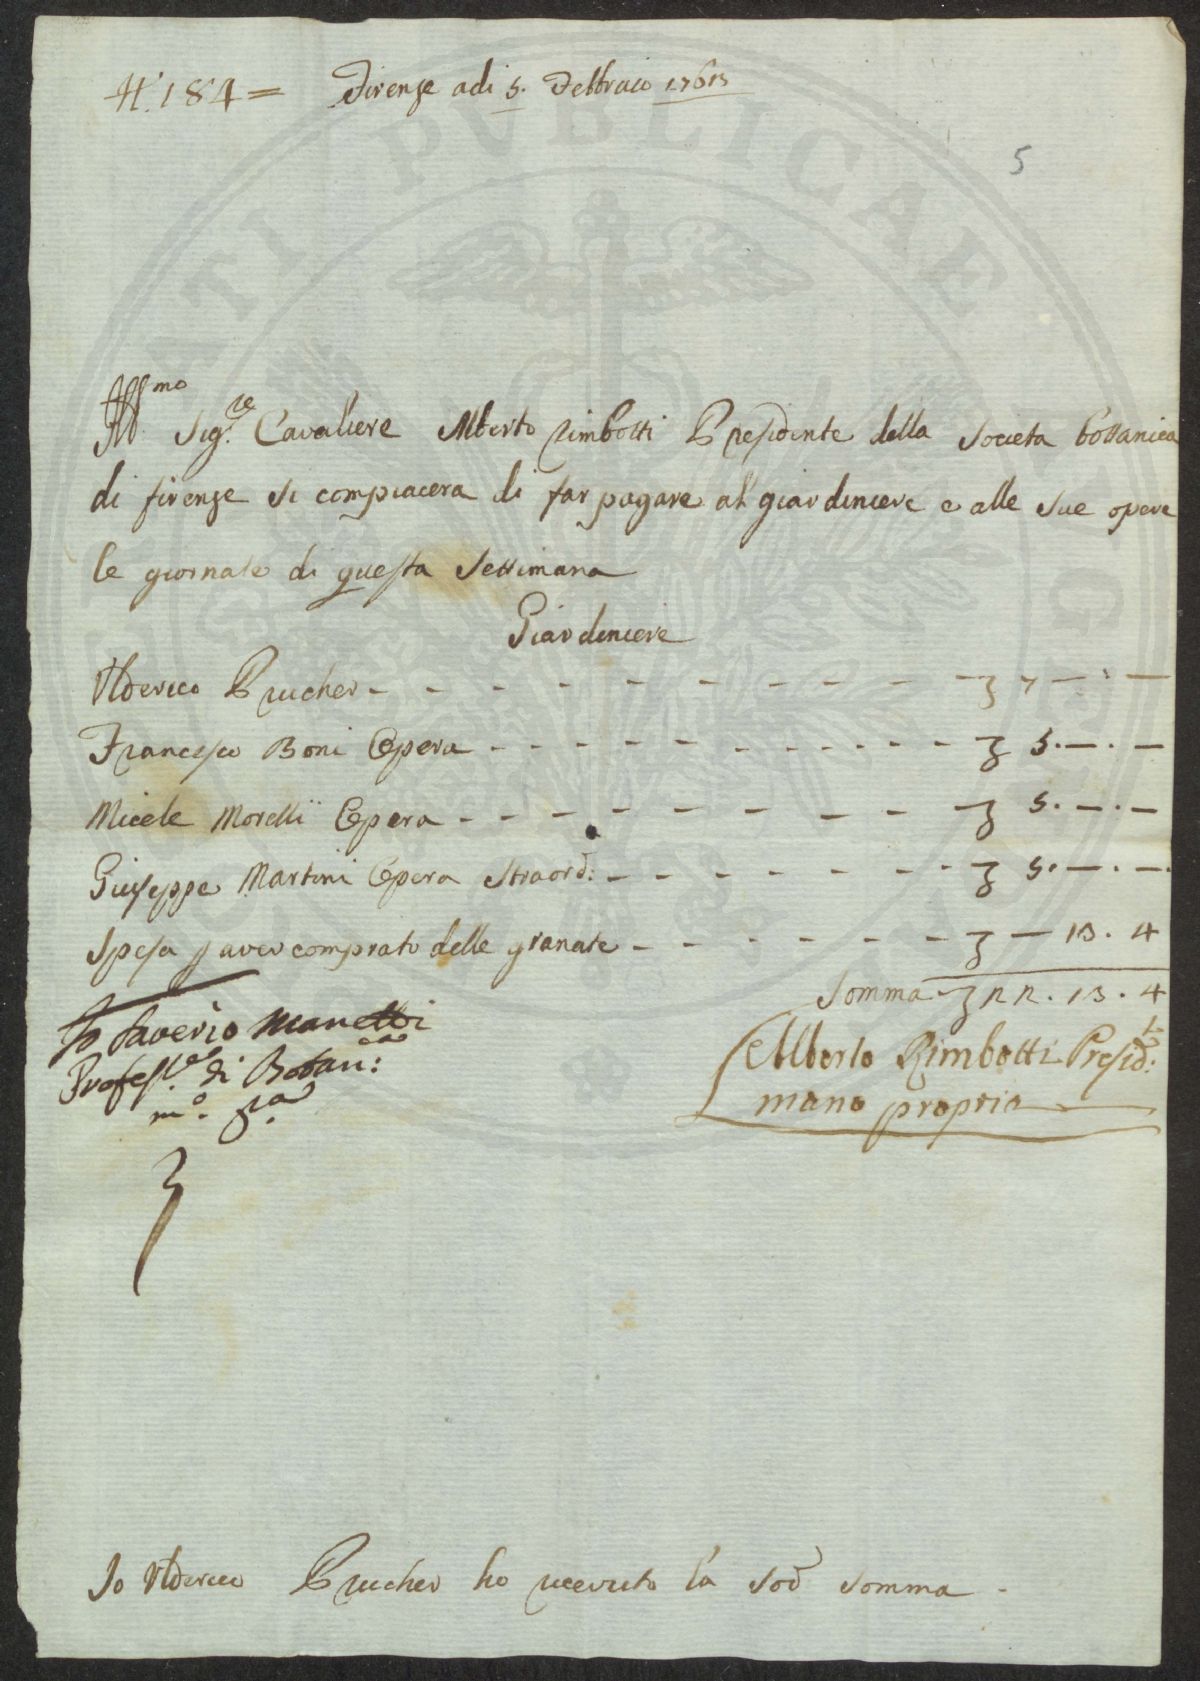 N.° 184 = Firenze adi 5. Febbraio 1763
5
Ill.mo Sig.re Cavaliere Alberto Rimbotti Presidente della Societa bottanica
di firenze si compiacera di far pagare al giardiniere e alle sue opere
le giornate di questa settimana
Giardiniere
Ulderico Prucher - - - - - - - - - - £ 7 — · —
Francesco Boni Opera - - - - - - - - - - £ 5. — . —
Micele Morelli Opera - - - - - - - - - £ 5. — . —
Giuseppe Martini Opera Straord: - - - - - - - £ 5. — . —
Spesa p aver comprato delle granate - - - - - - £ — 13. 4
Somma £ 22. 13. 4
Io Saverio Manetti
Profess.re di Botan.ca:
m.o p.a
Alberto Rimbotti Presid.te:
mano propria
Io Ulderico Prucher ho riceuto la sod somma